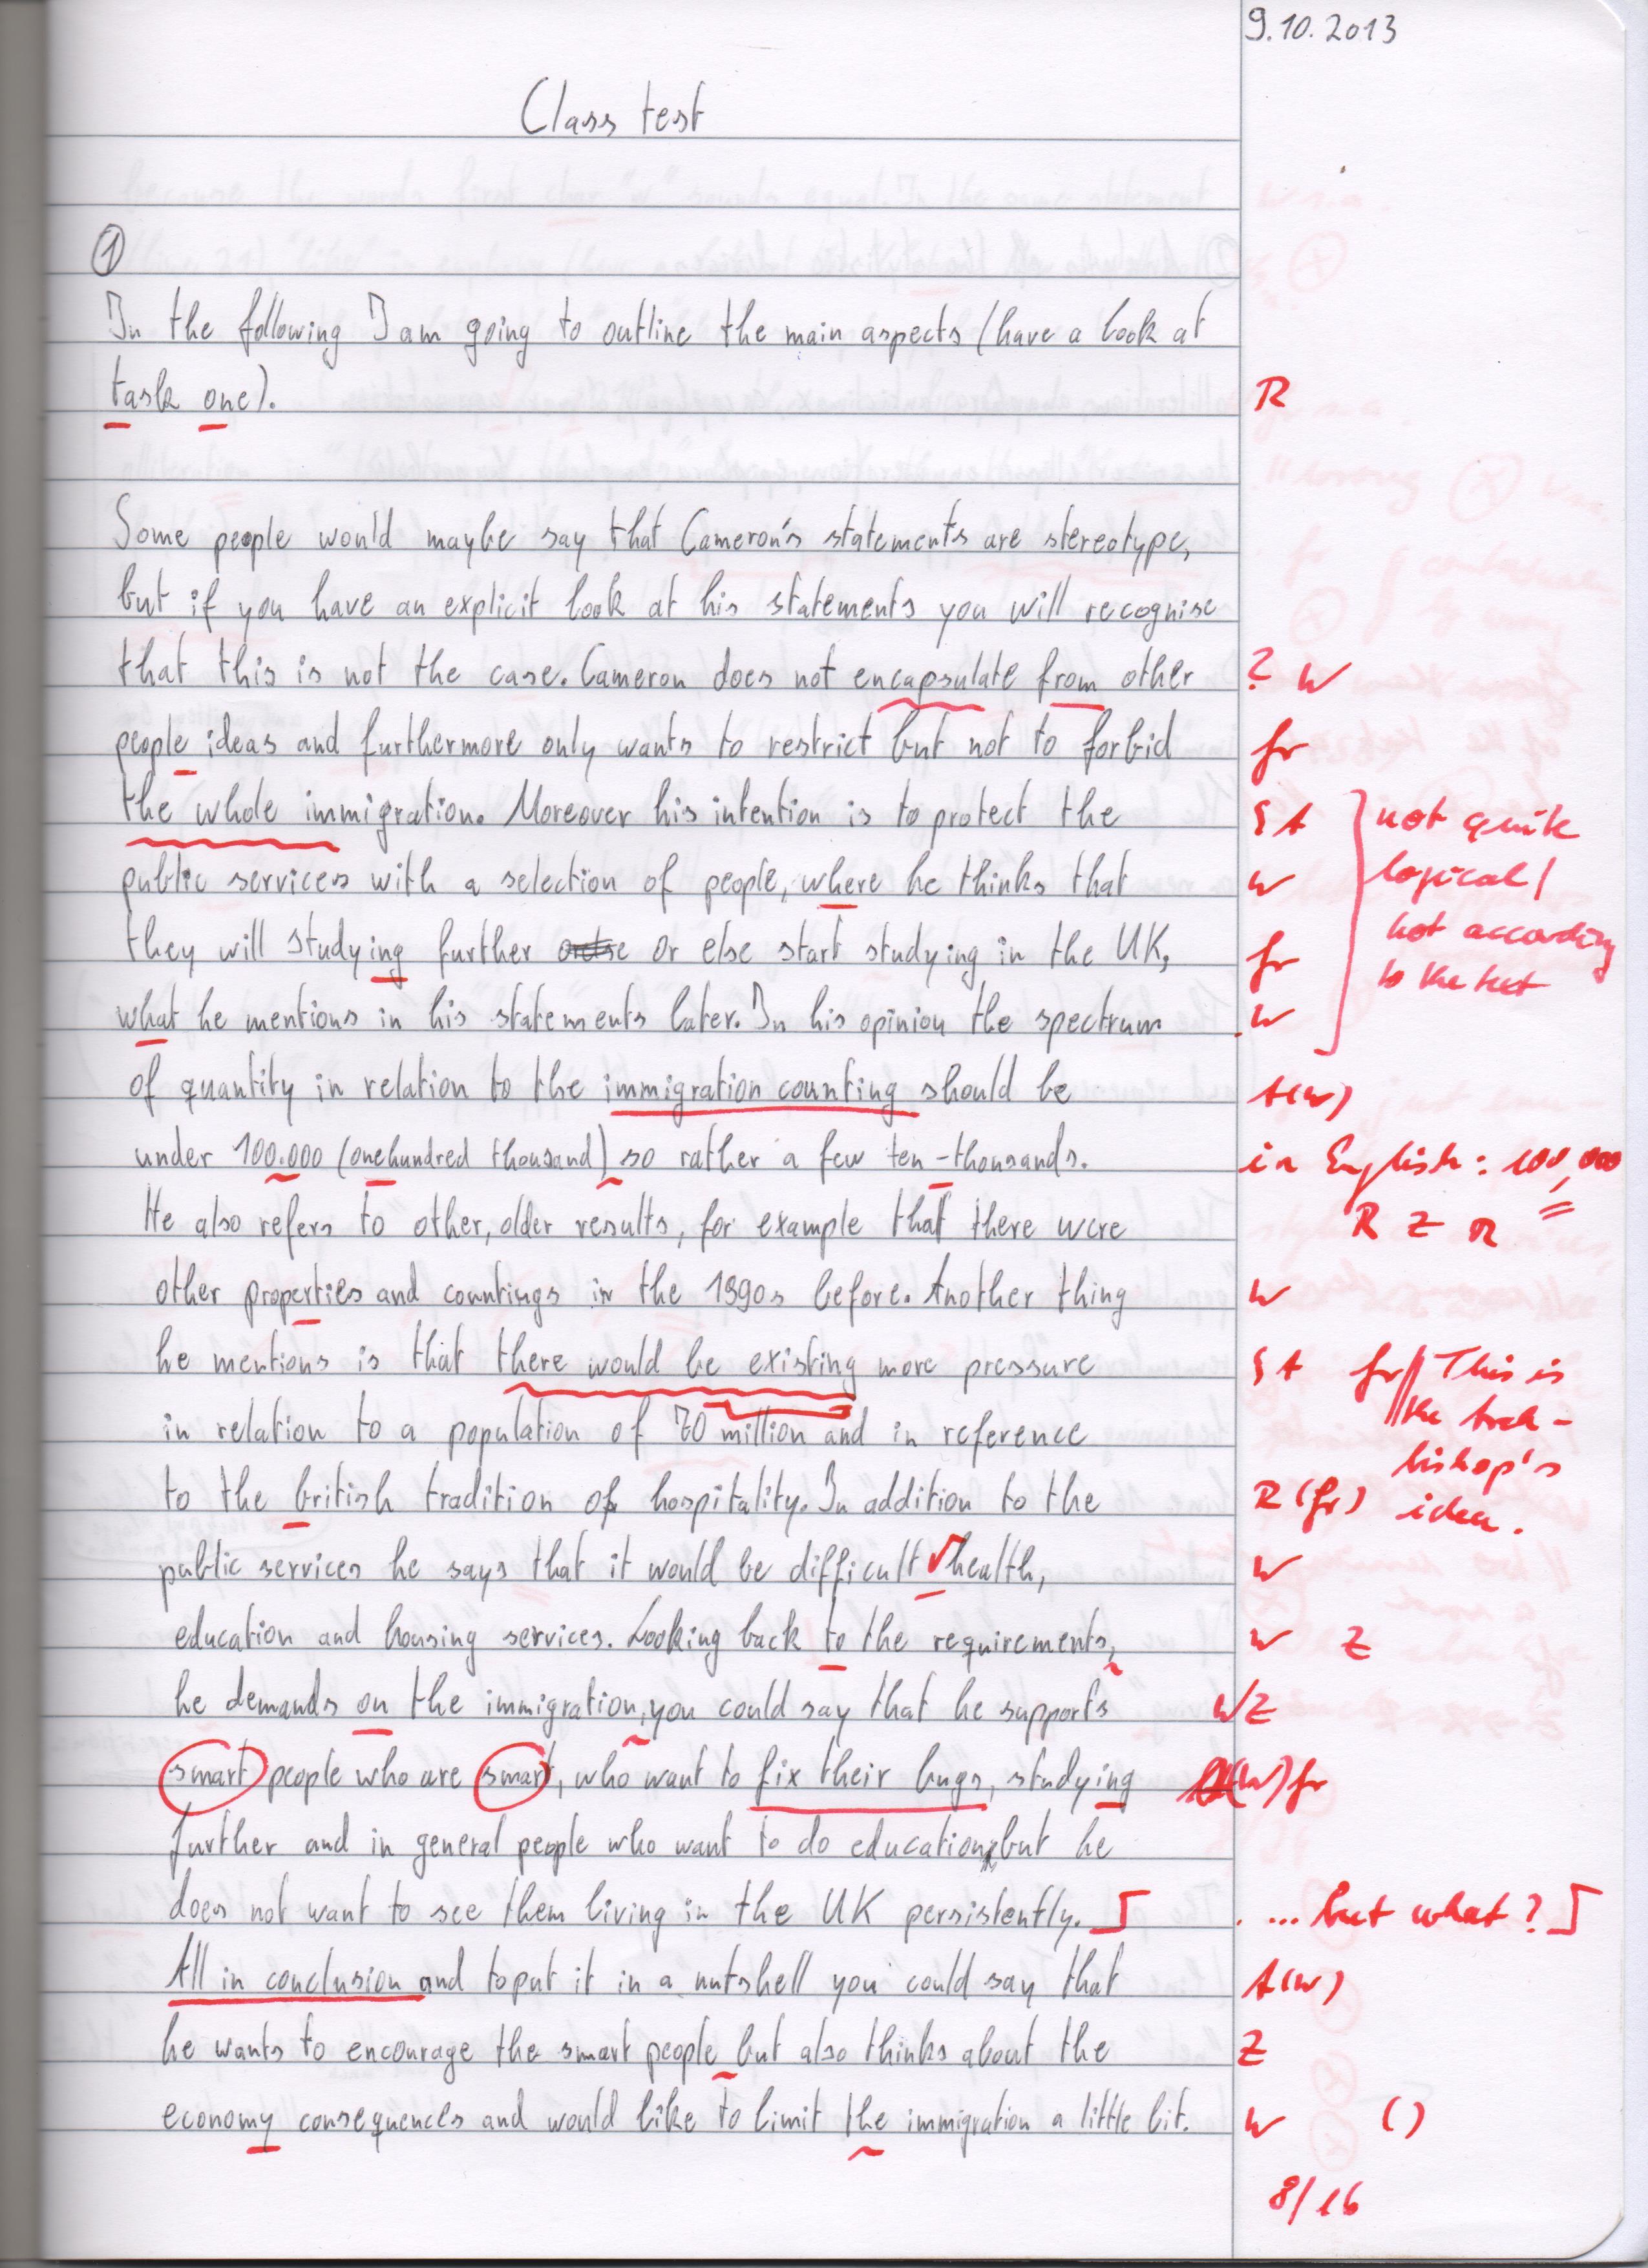 9.10.2013
Class test
①
In the following I am going to outline the main aspects (have a look at
task one). R
Some people would maybe say that Cameron's statements are stereotype,
but if you have an explicit look at his statements you will recognise
that this is not the case. Cameron does not encapsulate from other ? W
people ideas and furthermore only wants to restrict but not to forbid gr
the whole immigration. Moreover his intention is to protect the SA not quite
public services with a selection of people, where he thinks that W logical/
they will studying further or else start studying in the UK, gr not according
what he mentions in his statements later. In his opinion the spectrum W to the text
of quantity in relation to the immigration counting should be A(W)
under 100.000 (onehundred thousand) so rather a few ten-thousands. in English: 100,000
He also refers to other, older results, for example that there were R Z R
other properties and countings in the 1990s before. Another thing W
he mentions is that there would be existing more pressure SA gr // This is
in relation to a population of 70 million and in reference the Arch-
bishop's
to the british tradition of hospitality. In addition to the R (gr) idea.
public services he says that it would be difficult √ health, W
education and housing services. Looking back to the requirements, W Z
he demands on the immigration, you could say that he supports W Z
smart people who are smart, who want to fix their bugs, studying (W) gr
further and in general people who want to do education, but he
does not want to see them living in the UK persistently. ... but what?
All in conclusion and to put it in a nutshell you could say that A(W)
he wants to encourage the smart people but also thinks about the Z
economy consequences and would like to limit the immigration a little bit. W ()
8/16